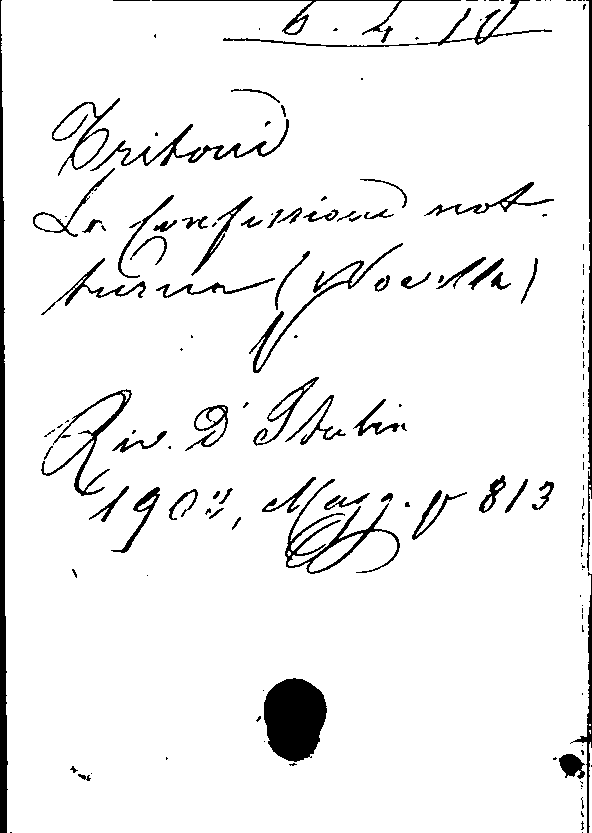 6. 4. 10
Tritoni
La Confessione not
turna (Novella)
V.
Riv. D' Italia
Magg. p 813